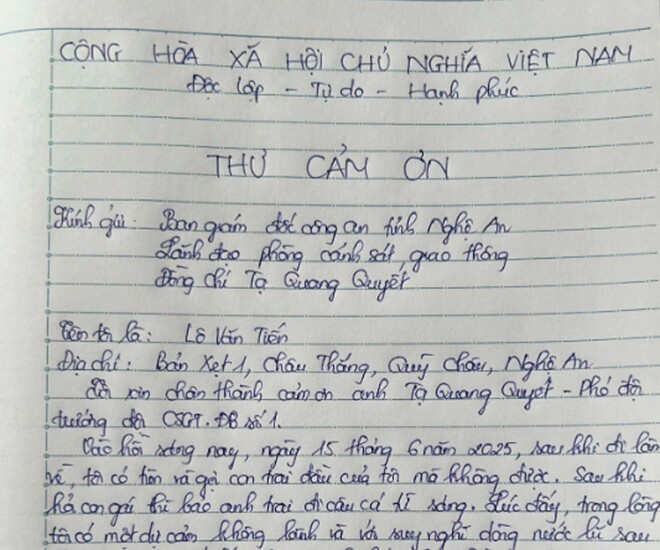 CỘNG HÒA XÃ HỘI CHỦ NGHĨA VIỆT NAM
Độc lập - Tự do - Hạnh phúc
THƯ CẢM ƠN
Kính gửi: Ban giám đốc công an tỉnh Nghệ An
Lãnh đạo phòng cảnh sát, giao thông
Đồng chí Tạ Quang Quyết
Tên tôi là: Lô Văn Tiến
Địa chỉ: Bản Xẹt 1, Châu Thắng, Quỳ Châu, Nghệ An
xin chân thành cảm ơn anh Tạ Quang Quyết - Phó đội
trưởng đội CSGT.ĐB số 1.
Vào hồi sáng nay, ngày 15 tháng 6 năm 2025, sau khi đi làm
về, tôi có tìm và gọi con trai đầu của tôi mà không được. Sau khi
hỏi con gái thì bảo anh trai đi câu cá từ sáng. Lúc đấy, trong lòng
tôi có một dự cảm không lành và với suy nghĩ dòng nước lũ sau